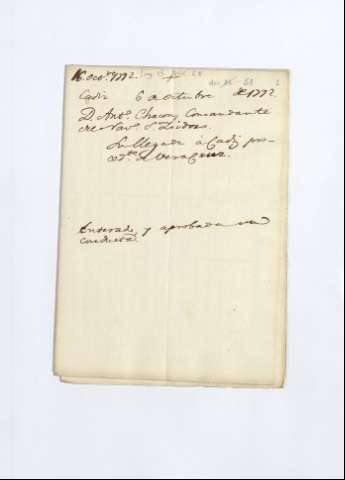 16 oct.re 1772.
Cadiz 6 de octubre de 1772
D. Ant.o Chacon Comandante
del Nav.o S.n Isidoro.
Su llegada à Cadiz pro-
ced.te de Vera Cruz.
Enterado, y aprobada su
conducta